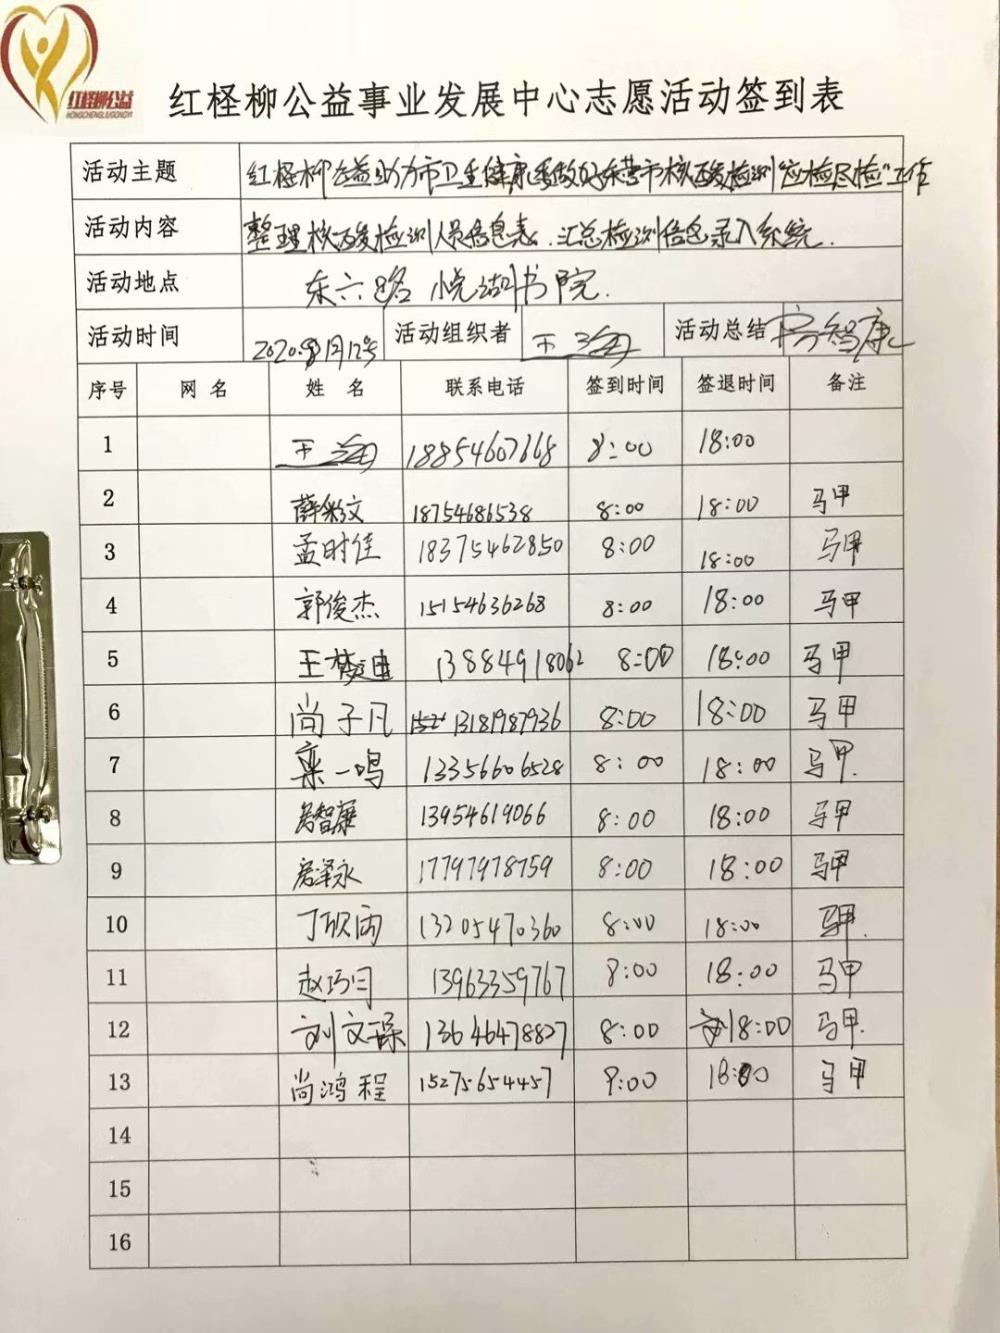 红柽柳公益
HONGCHENGLIUGONGYI
红柽柳公益事业发展中心志愿活动签到表
活动主题 红柽柳公益助力市卫生健康委做好东营市核酸检测“应检尽检”工作
活动内容 整理核酸检测人员信息表、汇总检测信息录入系统.
活动地点 东六路 悦湖书院.
活动时间 2020.8月12号 活动组织者 王海 活动总结 智康
序号 网 名 姓 名 联系电话 签到时间 签退时间 备注
1 王海 18854607668 8:00 18:00
2 薛彩文 18754686538 8:00 18:00 马甲
3 孟时佳 18375462850 8:00 18:00 马甲
4 郭俊杰 15154636268 8:00 18:00 马甲
5 王梦迪 13884918062 8:00 18:00 马甲
6 尚子凡 13181987936 8:00 18:00 马甲
7 栾一鸣 13356606528 8:00 18:00 马甲.
8 智康 13954619066 8:00 18:00 马甲
9 房泽永 17797978759 8:00 18:00 马甲
10 丁 13205470360 8:00 18:00 马甲.
11 赵巧 13963359767 8:00 18:00 马甲
12 刘文 13646478827 8:00 18:00 马甲.
13 尚鸿程 15275654457 9:00 18:00 马甲
14
15
16